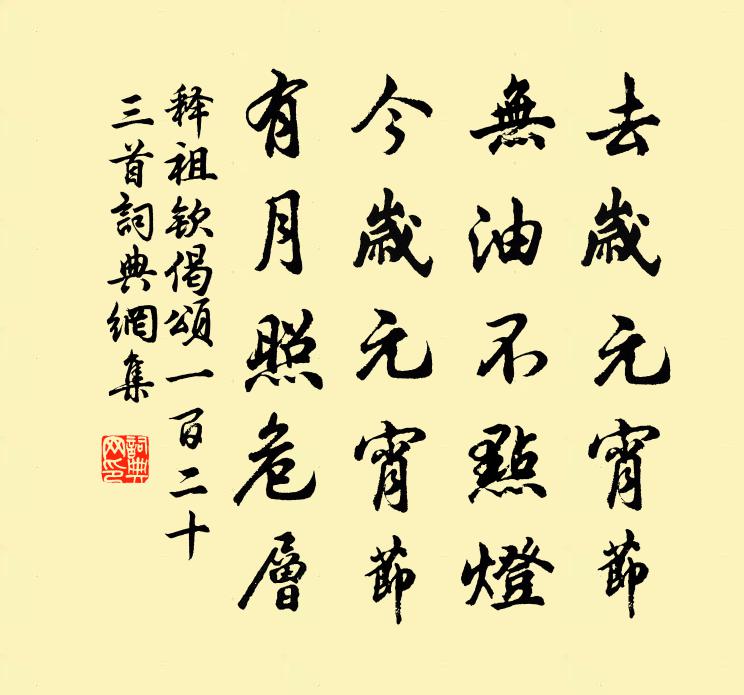 去歲元宵節
無油不點燈
今歲元宵節
有月照危層
释祖欽偈頌一百二十
三首詞典網集
詞典網印